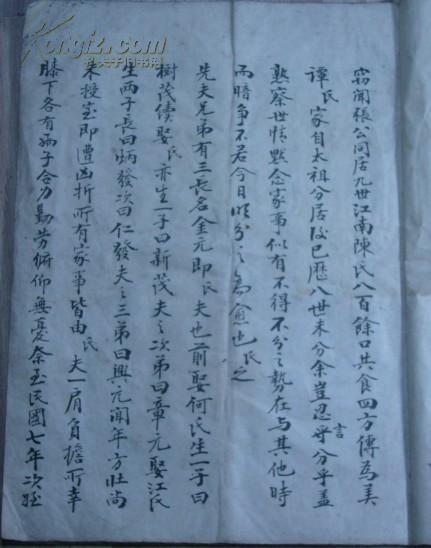 竊聞張公同居九世江南陳氏八百餘口共食四方傳為美
譚氏家自太祖分居後已歷八世未分余豈忍言分乎蓋
熟察世情默念家事似有不得不分之勢在與其他時
而暗爭不若今日明分之為愈也氏之
先夫兄弟有三長名金元即氏夫也前娶何氏生一子曰
樹茂續娶氏亦生一子曰新茂夫之次弟曰章元娶江氏
生兩子長曰炳發次曰仁發夫之三弟曰興元聞年方壯尚
未授室即遭凶折所有家事皆由氏夫一肩負擔所幸
膝下各有孫子合力勤勞俯仰無憂奈至民國七年次姪
Kongfz.com
孔夫子旧书网